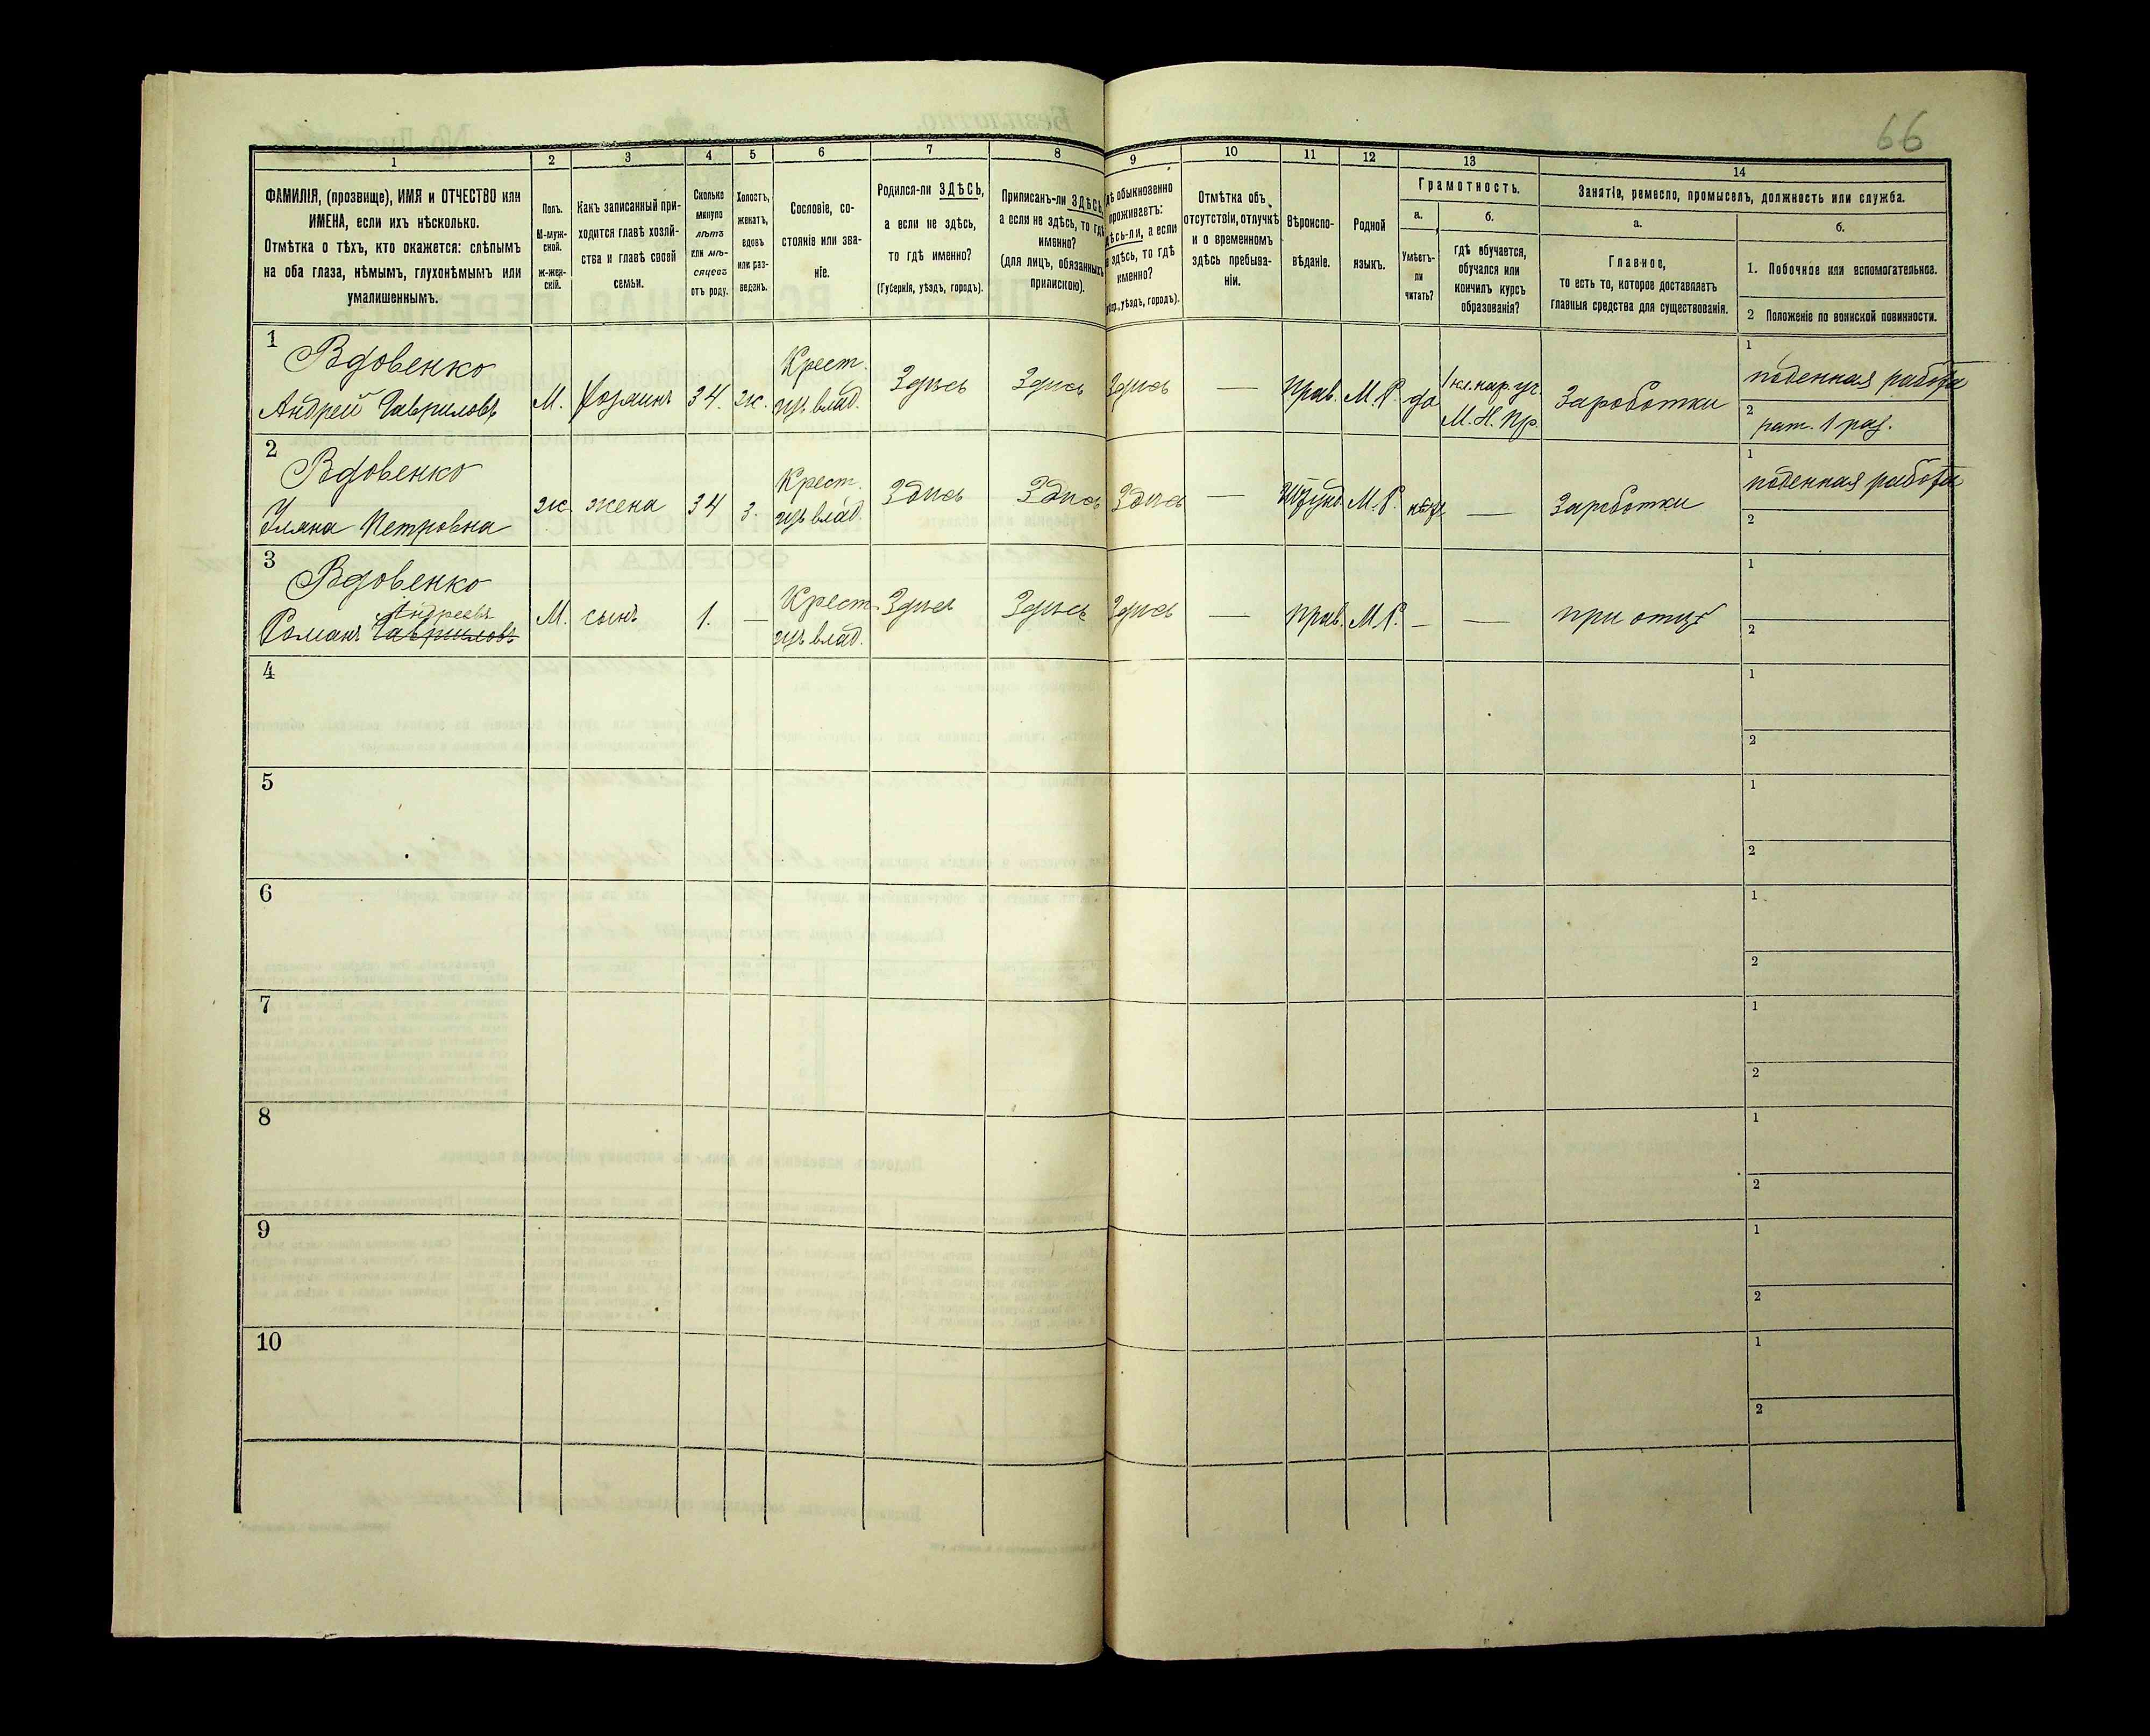 66
1 2 3 4 5 6 7 8 9 10 11 12 13 14
ФАМИЛІЯ, (прозвище), ИМЯ и ОТЧЕСТВО или
ИМЕНА, если ихъ нѣсколько.
Отмѣтка о тѣхъ, кто окажется: слѣпымъ
на оба глаза, нѣмымъ, глухонѣмымъ или
умалишеннымъ.
Полъ.
М-муж-
ской.
ж-жен-
скій.
Какъ записанный при-
ходится главѣ хозяй-
ства и главѣ своей
семьи.
Сколько
минуло
лѣтъ
или мѣ-
сяцевъ
отъ роду.
Холостъ,
женатъ,
вдовъ
или раз-
веденъ.
Сословіе, со-
стояніе или зва-
ніе.
Родился-ли ЗДѢСЬ,
а если не здѣсь,
то гдѣ именно?
(Губернія, уѣздъ, городъ).
Приписанъ-ли ЗДѢСЬ,
а если не здѣсь, то гдѣ
именно?
(для лицъ, обязанныхъ
припискою).
обыкновенно
проживаетъ:
а если
здѣсь, то гдѣ
именно?
уѣздъ, городъ).
Отмѣтка объ
отсутствіи, отлучкѣ
и о временномъ
здѣсь пребыва-
ніи.
Вѣроиспо-
вѣданіе.
Родной
языкъ.
Грамотность.
а.
Умѣетъ-
ли
читать?
б.
гдѣ обучается,
обучался или
кончилъ курсъ
образованія?
Занятіе, ремесло, промыселъ, должность или служба.
а.
Главное,
то есть то, которое доставляетъ
главныя средства для существованія.
б.
1. Побочное или вспомогательное.
2 Положеніе по воинской повинности.
1
Вдовенко
Андрей Гавриловъ
М. хозяинъ 34. ж. Крест.
изъ влад.
Здѣсь Здѣсь Здѣсь — прав. М.Р. да
1 кл. нар. уч.
М.Н.Пр.
Зароботки
1
поденная работа
2
рат. 1 раз.
2
Вдовенко
Уляна Петровна
ж. жена 34 з. Крест.
изъ влад.
Здѣсь Здѣсь Здѣсь — М.Р. — Зароботки
1
поденная работа
2
3
Вдовенко
Андреевъ
Романъ Гавриловъ
М. сынъ 1. — Крест.
изъ влад.
Здѣсь Здѣсь Здѣсь — прав. М.Р. — — при отцѣ
1
2
4
1
2
5
1
2
6
1
2
7
1
2
8
1
2
9
1
2
10
1
2